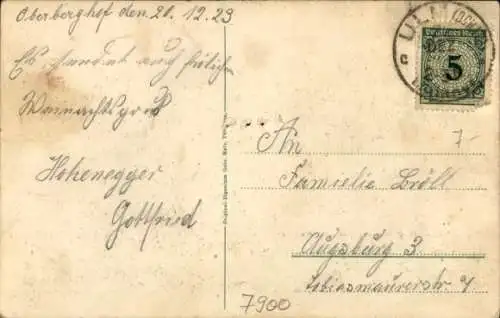 Oberberghof den 20.12.23
Es sendet auch frölichen
Weinachtsgruß
Hohenegger
Gottfried
ULM (DONAU)
Deutsches Reich
5
An
Familie Bröll
Augsburg 3
7
7900